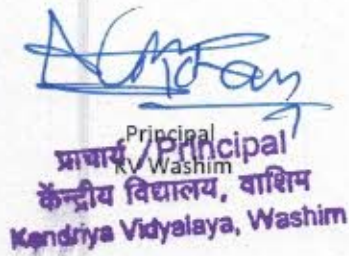 Principal
KV Washim
प्राचार्य / Principal
केंन्द्रीय विद्यालय, वाशिम
Kendriya Vidyalaya, Washim